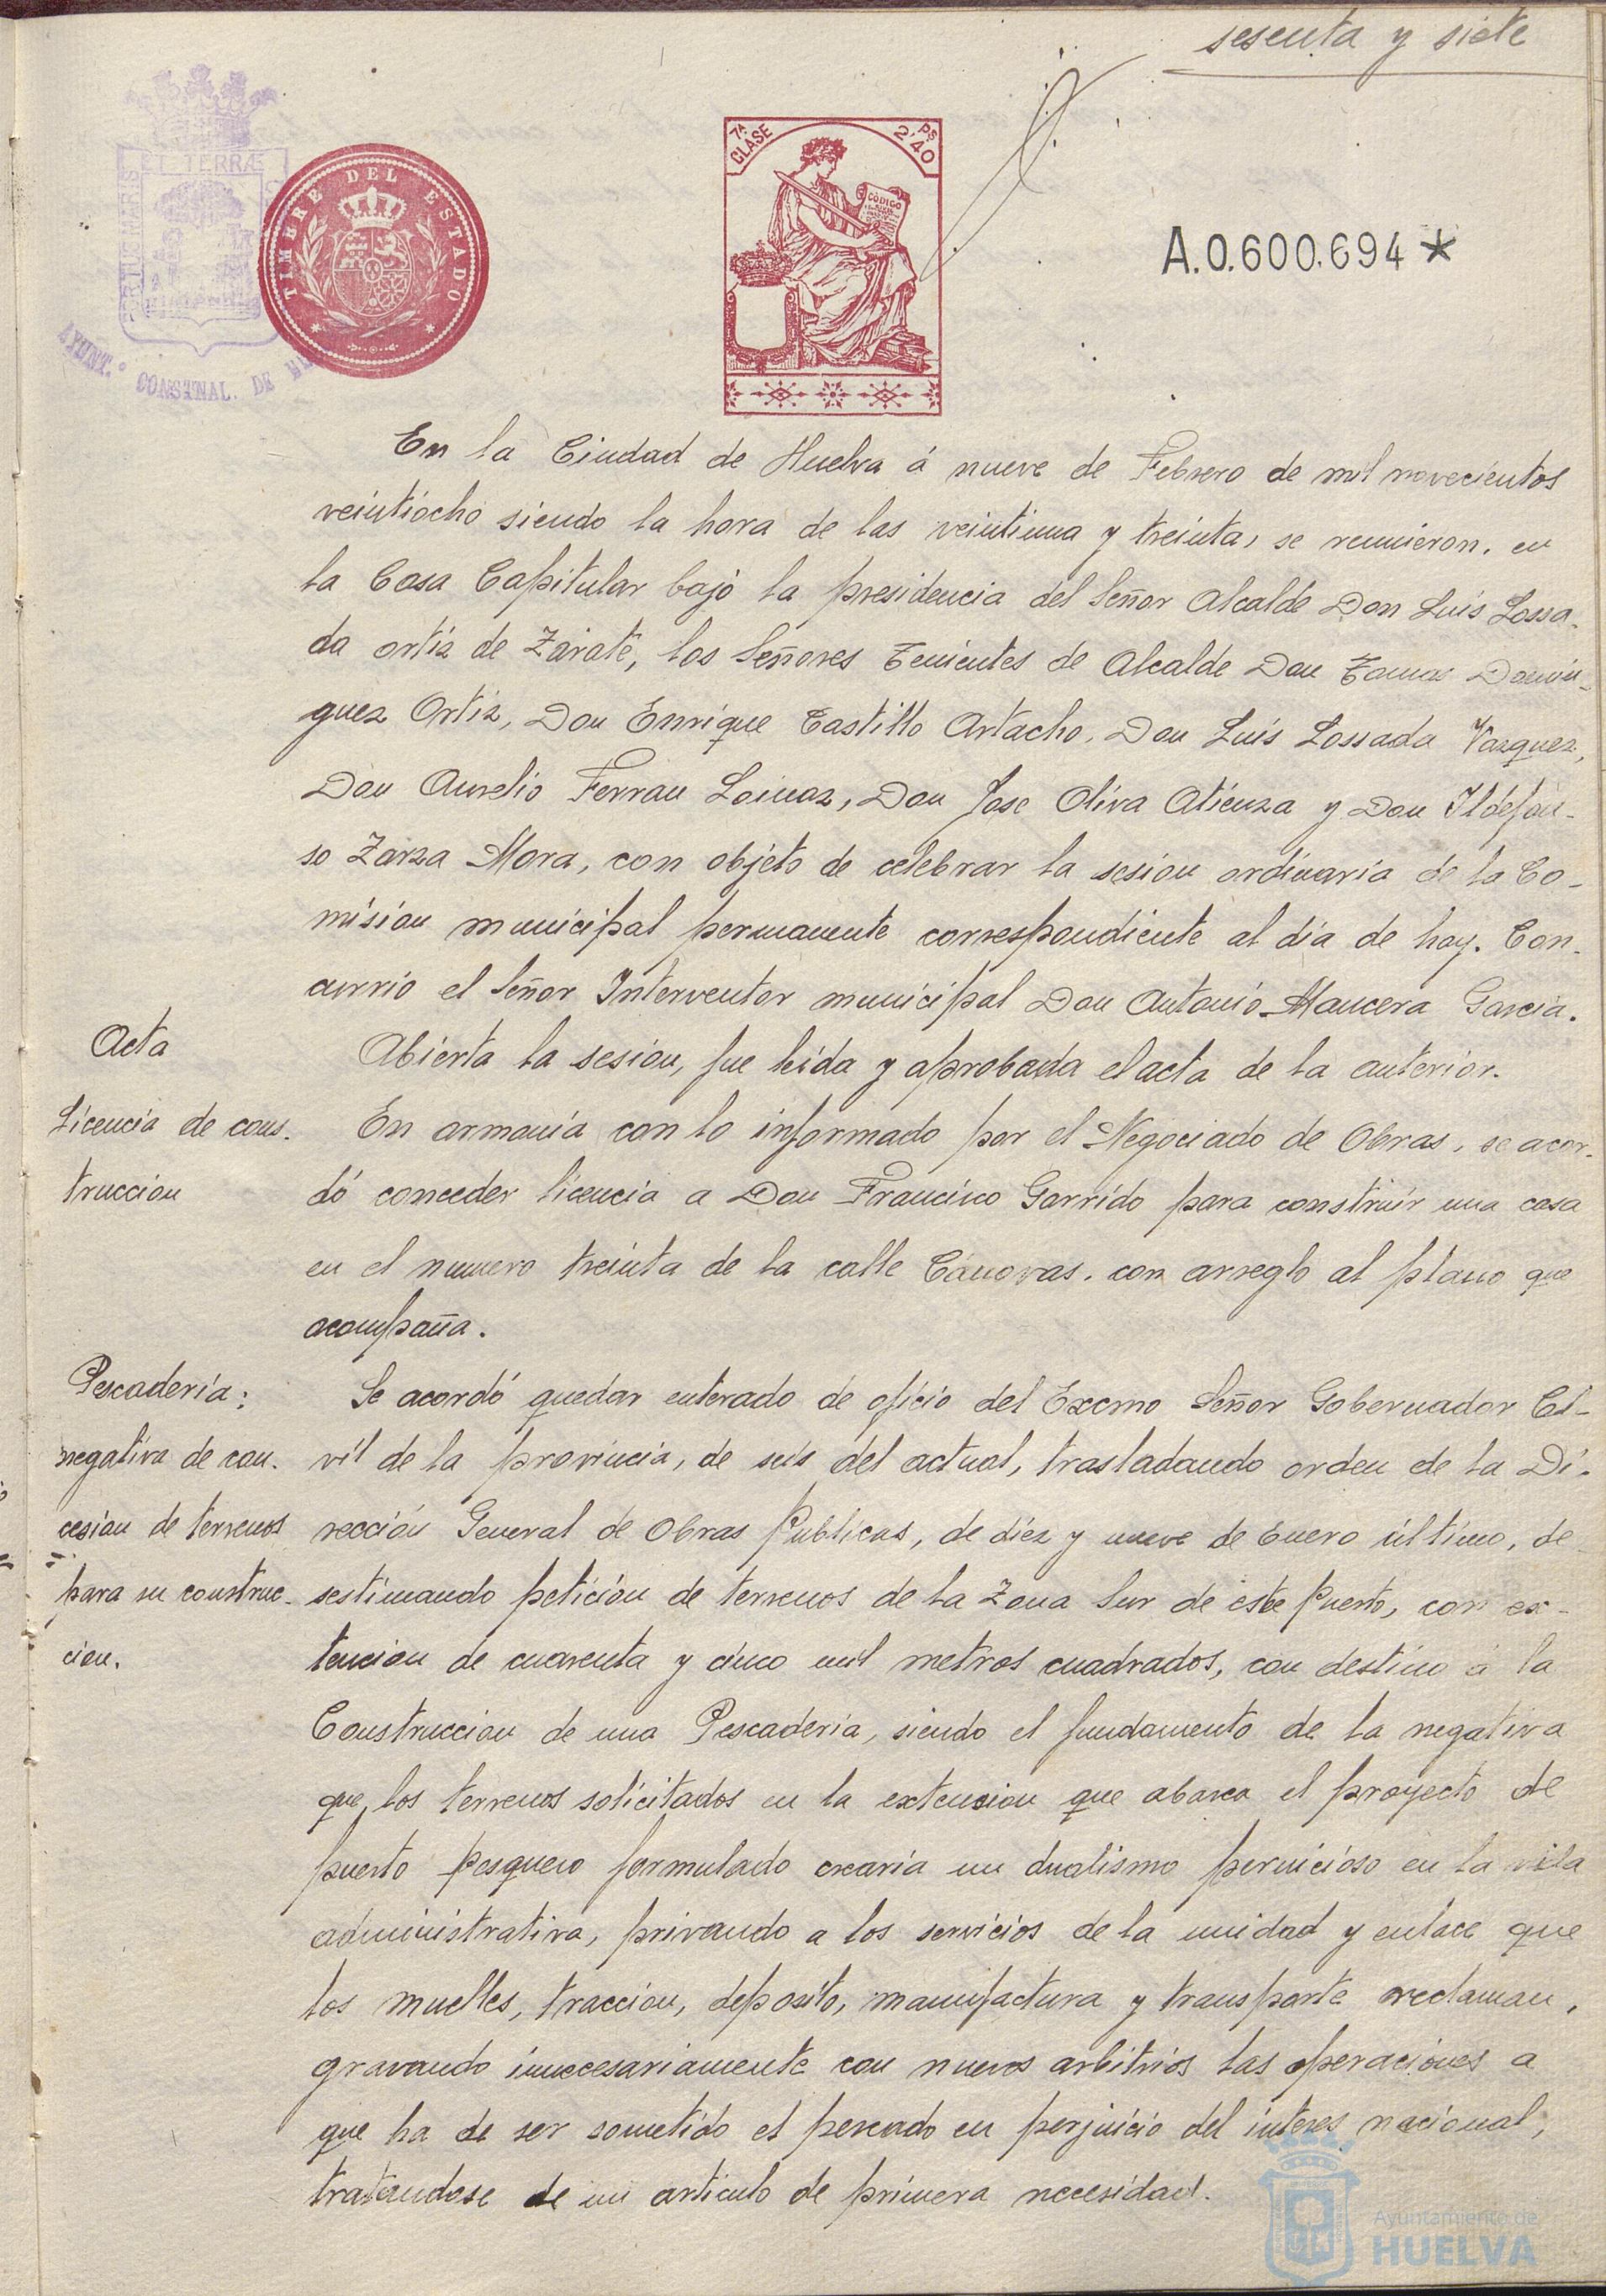 sesenta y siete
ET TERRÆ
AYUNT.º CONSTNAL. DE
TIMBRE DEL ESTADO
7ª CLASE
2'40 PS
CÓDIGO
A.0.600.694*
En la Ciudad de Huelva á nueve de Febrero de mil novecientos
veintiocho siendo la hora de las veintiuna y treinta, se reunieron, en
la Casa Capitular bajo la presidencia del Señor Alcalde Don Luis Lossa-
da ortiz de Zárate, los Señores Tenientes de Alcalde Don Tomas Domin-
guez Ortiz, Don Enrique Castillo Artacho, Don Luis Lossada Vazquez,
Don Aurelio Ferran Loimaz, Don Jose Oliva Atienza y Don Ildefon-
so Zarza Mora, con objeto de celebrar la sesion ordinaria de la Co-
mision municipal permanente correspondiente al dia de hoy. Con-
currio el Señor Interventor municipal Don Antonio Mancera Garcia.
Acta
Abierta la sesion, fue leida y aprobada el acta de la anterior.
Licencia de cons-
truccion
En armonia con lo informado por el Negociado de Obras, se acor-
dó conceder licencia a Don Francisco Garrido para construir una casa
en el numero treinta de la calle Cánovas, con arreglo al plano que
acompaña.
Pescaderia:
negativa de con-
cesion de terrenos
para su construc-
cion.
Se acordó quedar enterado de oficio del Excmo Señor Gobernador Ci-
vil de la provincia, de seis del actual, trasladando orden de la Di-
rección General de Obras Publicas, de diez y nueve de Enero último, de-
sestimando petición de terrenos de la Zona Sur de este Puerto, con ex-
tencion de cuarenta y cinco mil metros cuadrados, con destino á la
Construccion de una Pescaderia, siendo el fundamento de la negativa
que, los terrenos solicitados en la extension que abarca el proyecto de
puerto pesquero formulado crearia un dualismo pernicioso en la vida
administrativa, privando a los servicios de la unidad y enlace que
los muelles, traccion, deposito, manufactura y transporte reclaman,
gravando innecesariamente con nuevos arbitrios las operaciones a
que ha de ser sometido el pescado en perjuicio del interes nacional,
tratandose de un articulo de primera necesidad.
Ayuntamiento de
HUELVA